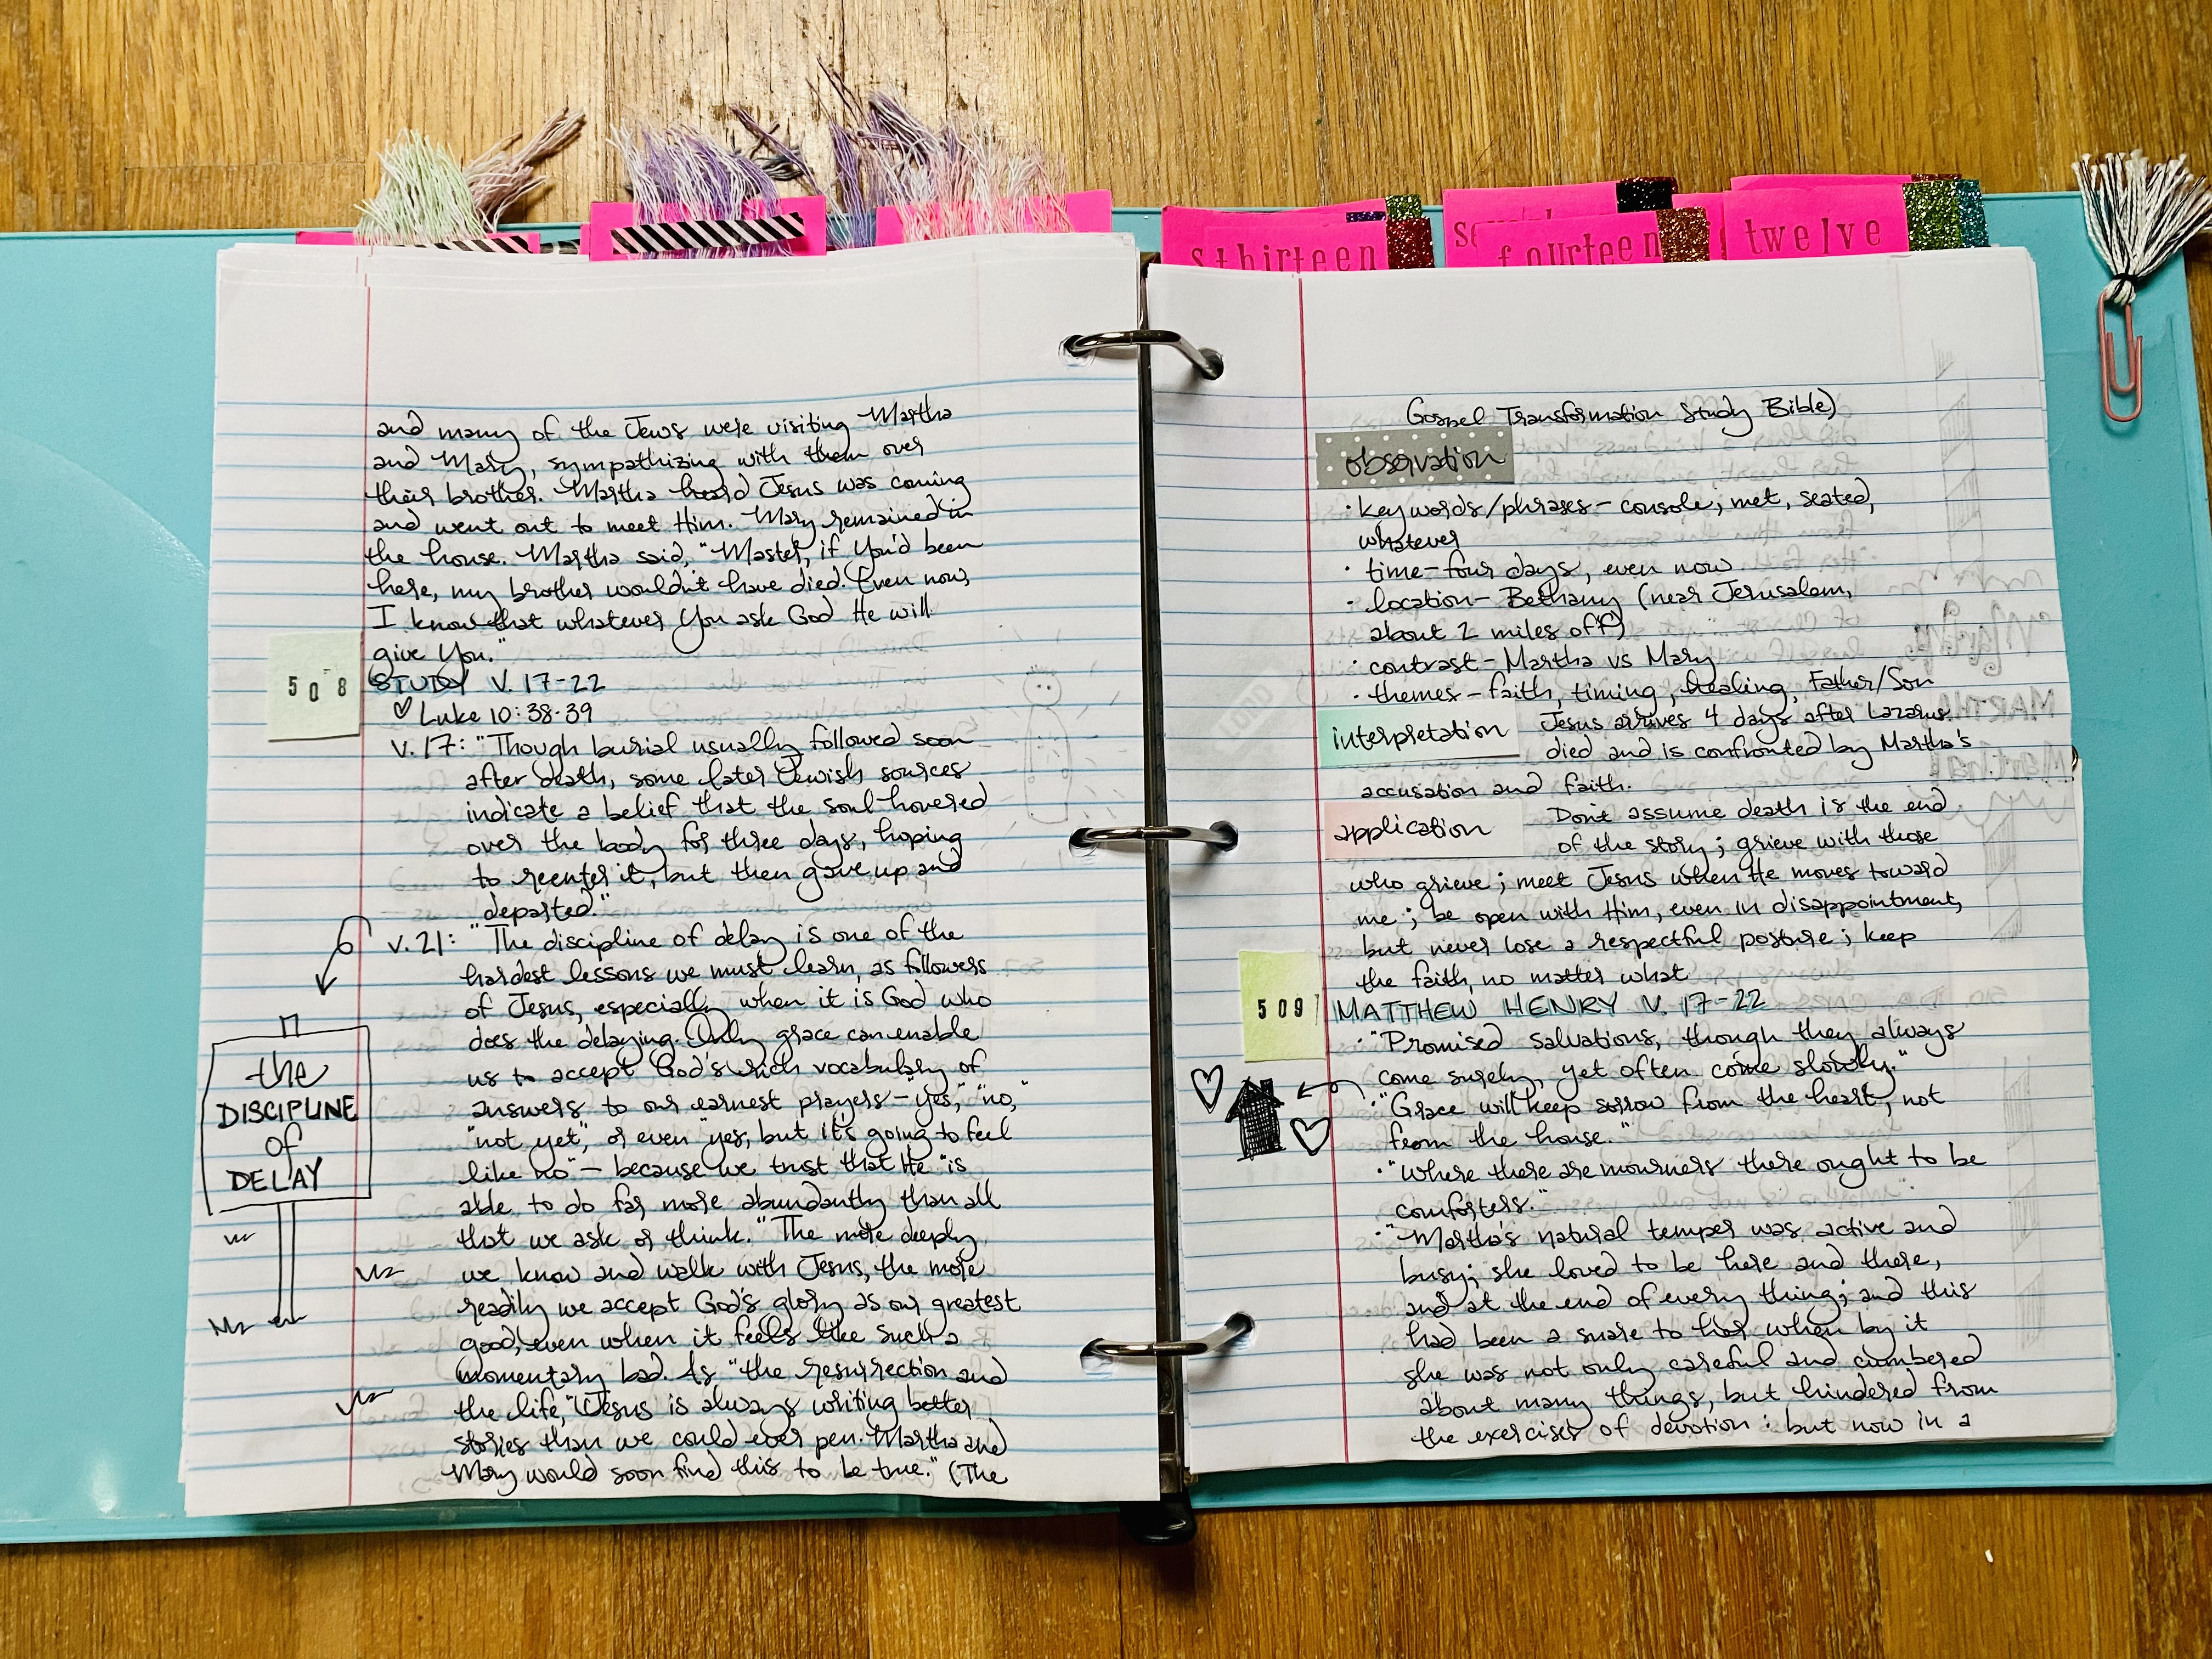 sthirteen
fourteen
twelve
and many of the Jews were visiting Martha
and Mary, sympathizing with them over
their brother. Martha heard Jesus was coming
and went out to meet Him. Mary remained in
the house. Martha said, "Master, if You'd been
here, my brother wouldn't have died. Even now,
I know that whatever You ask God He will
give You."
508
STUDY V. 17-22
♡ Luke 10:38-39
v. 17: "Though burial usually followed soon
after death, some later Jewish sources
indicate a belief that the soul hovered
over the body for three days, hoping
to reenter it, but then gave up and
departed."
v. 21: "The discipline of delay is one of the
hardest lessons we must learn, as followers
of Jesus, especially when it is God who
does the delaying. Only grace can enable
us to accept God's rich vocabulary of
answers to our earnest prayers—"yes," "no,"
"not yet", or even "yes, but it's going to feel
like no" — because we trust that He "is
able to do far more abundantly than all
that we ask or think." The more deeply
we know and walk with Jesus, the more
readily we accept God's glory as our greatest
good, even when it feels like such a
momentary bad. As "the resurrection and
the life," Jesus is always writing better
stories than we could ever pen. Martha and
Mary would soon find this to be true." (The
the
DISCIPLINE
of
DELAY
Gospel Transformation Study Bible)
observation
· key words/phrases – console, met, seated,
whatever
· time – four days, even now
· location – Bethany (near Jerusalem,
about 2 miles off)
· contrast – Martha vs Mary
· themes – faith, timing, healing, Father/Son
interpretation Jesus arrives 4 days after Lazarus
died and is confronted by Martha's
accusation and faith.
application Don't assume death is the end
of the story; grieve with those
who grieve; meet Jesus when He moves toward
me; be open with Him, even in disappointment,
but never lose a respectful posture; keep
the faith, no matter what
509
MATTHEW HENRY V. 17-22
· "Promised salvations, though they always
come surely, yet often come slowly."
· "Grace will keep sorrow from the heart, not
from the house."
· "Where there are mourners there ought to be
comforters."
· "Martha's natural temper was active and
busy; she loved to be here and there,
and at the end of every thing; and this
had been a snare to her when by it
she was not only careful and cumbered
about many things, but hindered from
the exercises of devotion: but now in a